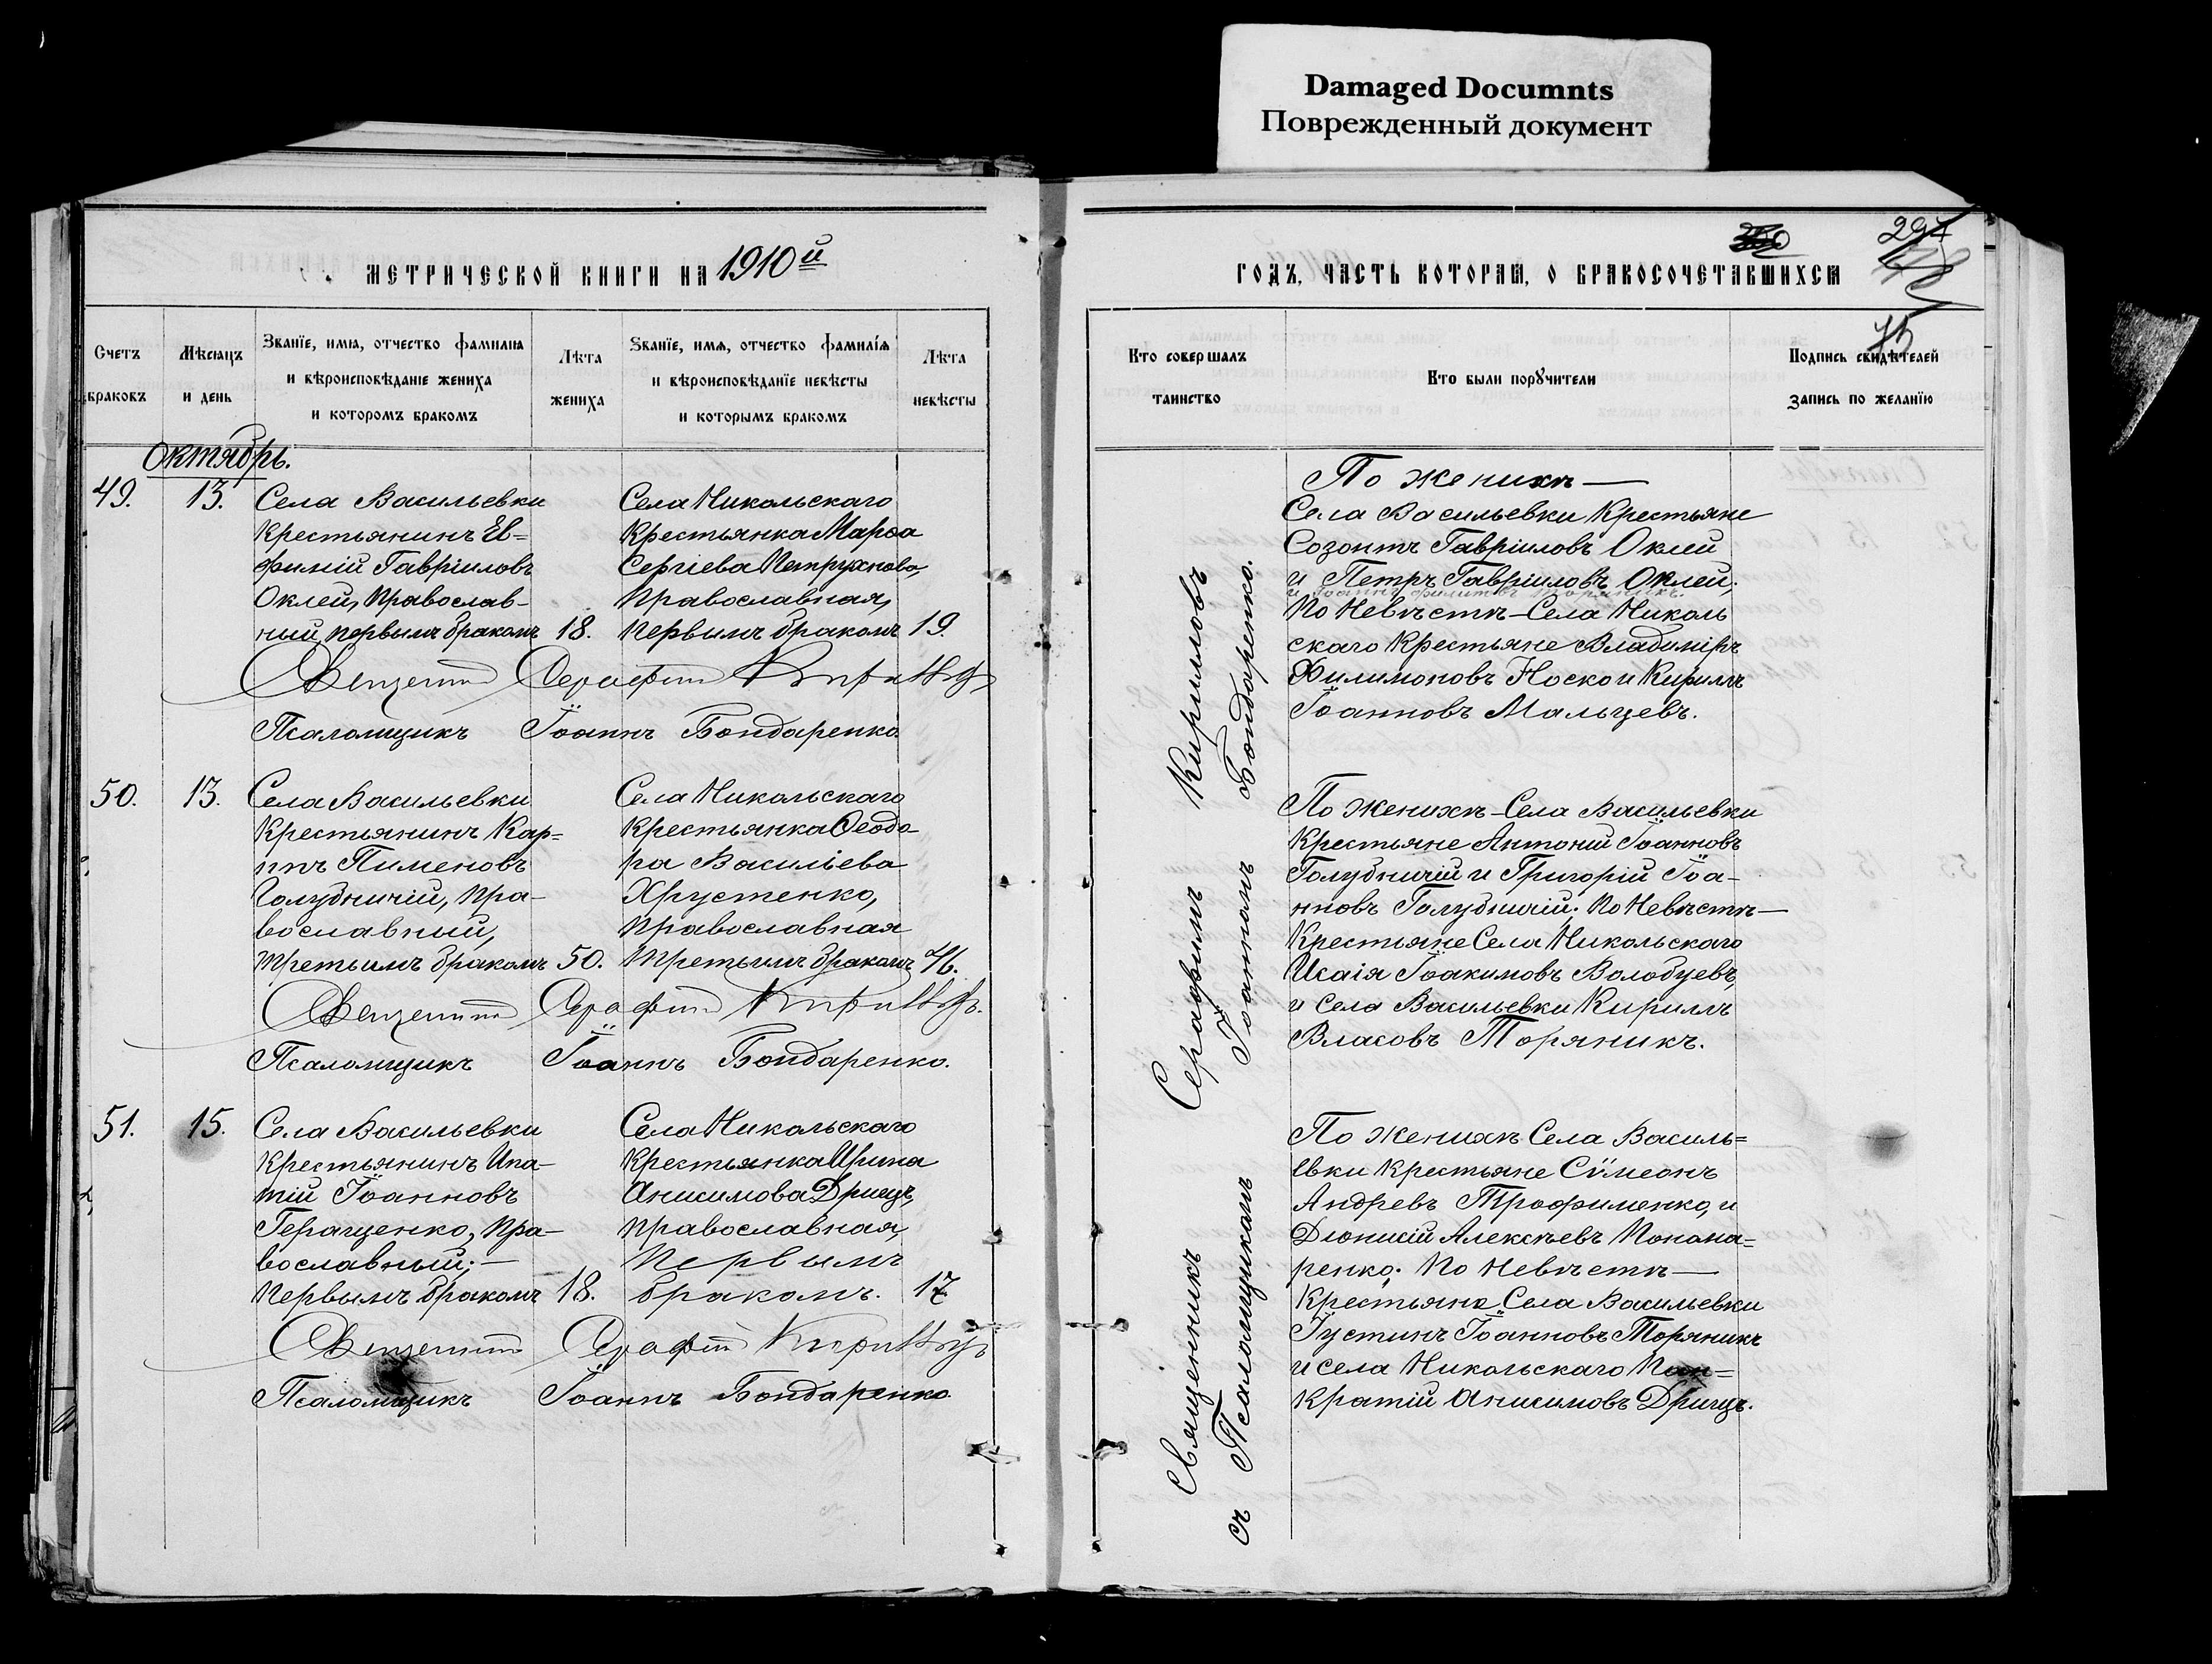 Damaged Documnts
Поврежденный документ
МЕТРИЧЕСКОЙ КНИГИ НА 1910й
Счетъ браковъ
Мѣсяцъ и день
Званїе, имя, отчество фамилия
и вѣроисповѣданїе жениха
и которомъ бракомъ
Лѣта жениха
Званїе, имя, отчество фамилїя
и вѣроисповѣданїе невѣсты
и которымъ бракомъ
Лѣта невѣсты
Октябрь.
49. 13.
Села Васильевки
крестьянинъ Ев=
фимій Гавріиловъ
Оклей, православ-
ный, первымъ бракомъ 18.
Села Никольскаго
крестьянка Марѳа
Сергіева Петрухнова,
православная,
первымъ бракомъ 19.
Священникъ Серафимъ Кирилловъ
Псаломщикъ Іоаннъ Бондаренко
50. 13.
Села Васильевки
крестьянинъ Кар=
пъ Пименовъ
Голубничій, пра-
вославный,
третьимъ бракомъ 50.
Села Никольскаго
крестьянка Ѳеодо-
ра Васильева
Хрустенко,
православная
третьимъ бракомъ 46.
Священникъ Серафимъ Кирилловъ.
Псаломщикъ Іоаннъ Бондаренко.
51. 15.
Села Васильевки
крестьянинъ Ипа-
тій Іоанновъ
Геращенко, пра-
вославный;—
первымъ бракомъ 18.
Села Никольскаго
крестьянка Ирина
Анисимова Дрищъ,
православная,
первымъ
бракомъ. 17.
Священникъ Серафимъ Кирилловъ
Псаломщикъ Іоаннъ Бондаренко
297
75
ГОДЪ, ЧАСТЬ КОТОРАЯ, О БРАКОСОЧЕТАВШИХСЯ
Кто совершалъ
таинство
Кто были порꙋчители
Подпись свидѣтелей
запись по желанїю
Священникъ Серафимъ Кирилловъ
съ Псаломщикомъ Іоанномъ Бондаренко.
По женихѣ —
Села Васильевки крестьяне
Созонтъ Гавріиловъ Оклей
и Петръ Гавріиловъ Оклей;
По Невѣстѣ – Села Николь
скаго крестьяне Владиміръ
Филимоновъ Носко и Кириллъ
Іоанновъ Мальцевъ.
По женихѣ – Села Васильевки
крестьяне Антоній Іоанновъ
Голубничій и Григорій Іоа-
нновъ Голубничій; По Невѣстѣ —
Крестьяне Села Никольскаго
Исаія Іоакимовъ Волобуевъ,
и села Васильевки Кириллъ
Власовъ Торяникъ.
По женихѣ Села Василь=
евки крестьяне Сімеонъ
Андревъ Трофименко, и
Діонисій Алексѣевъ Понома=
ренко; По Невѣстѣ —
Крестьяне Села Васильевки
Іустинъ Іоанновъ Торяникъ
и села Никольскаго Пан=
кратій Анисимовъ Дрищъ.